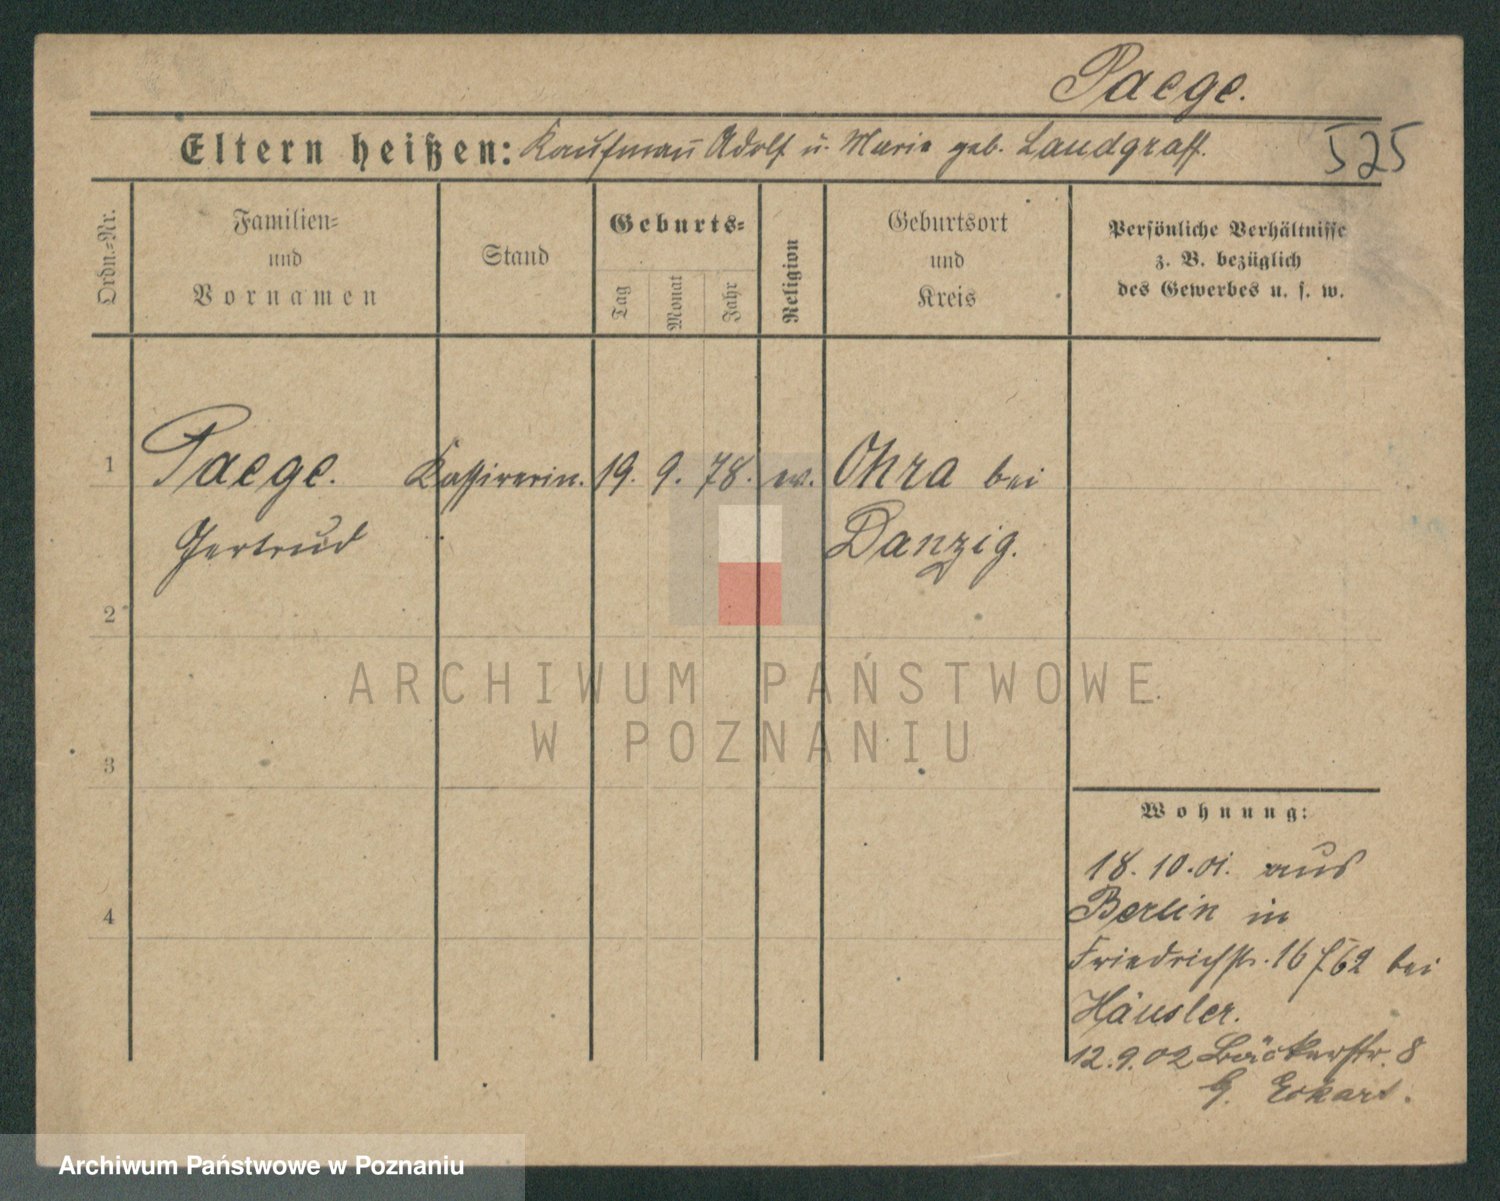 Paege.
525
Eltern heißen: Kaufmañ Adolf u. Marie geb. Landgraff.
Ordn.-Nr.
Familien-
und
Vornamen
Stand
Geburts-
Tag
Monat
Jahr
Religion
Geburtsort
und
Kreis
Persönliche Verhältnisse
z. B. bezüglich
des Gewerbes u. s. w.
1 Paege. Kassirerin. 19. 9. 78. ev. Ohra bei
Gertrud Danzig.
2
3
4
Wohnung:
18. 10. 01. aus
Berlin in
Friedrichstr. 16 bei
Häusler.
12. 9. 02 Bäckerstr. 8
Eckart.
ARCHIWUM PAŃSTWOWE
W POZNANIU
Archiwum Państwowe w Poznaniu